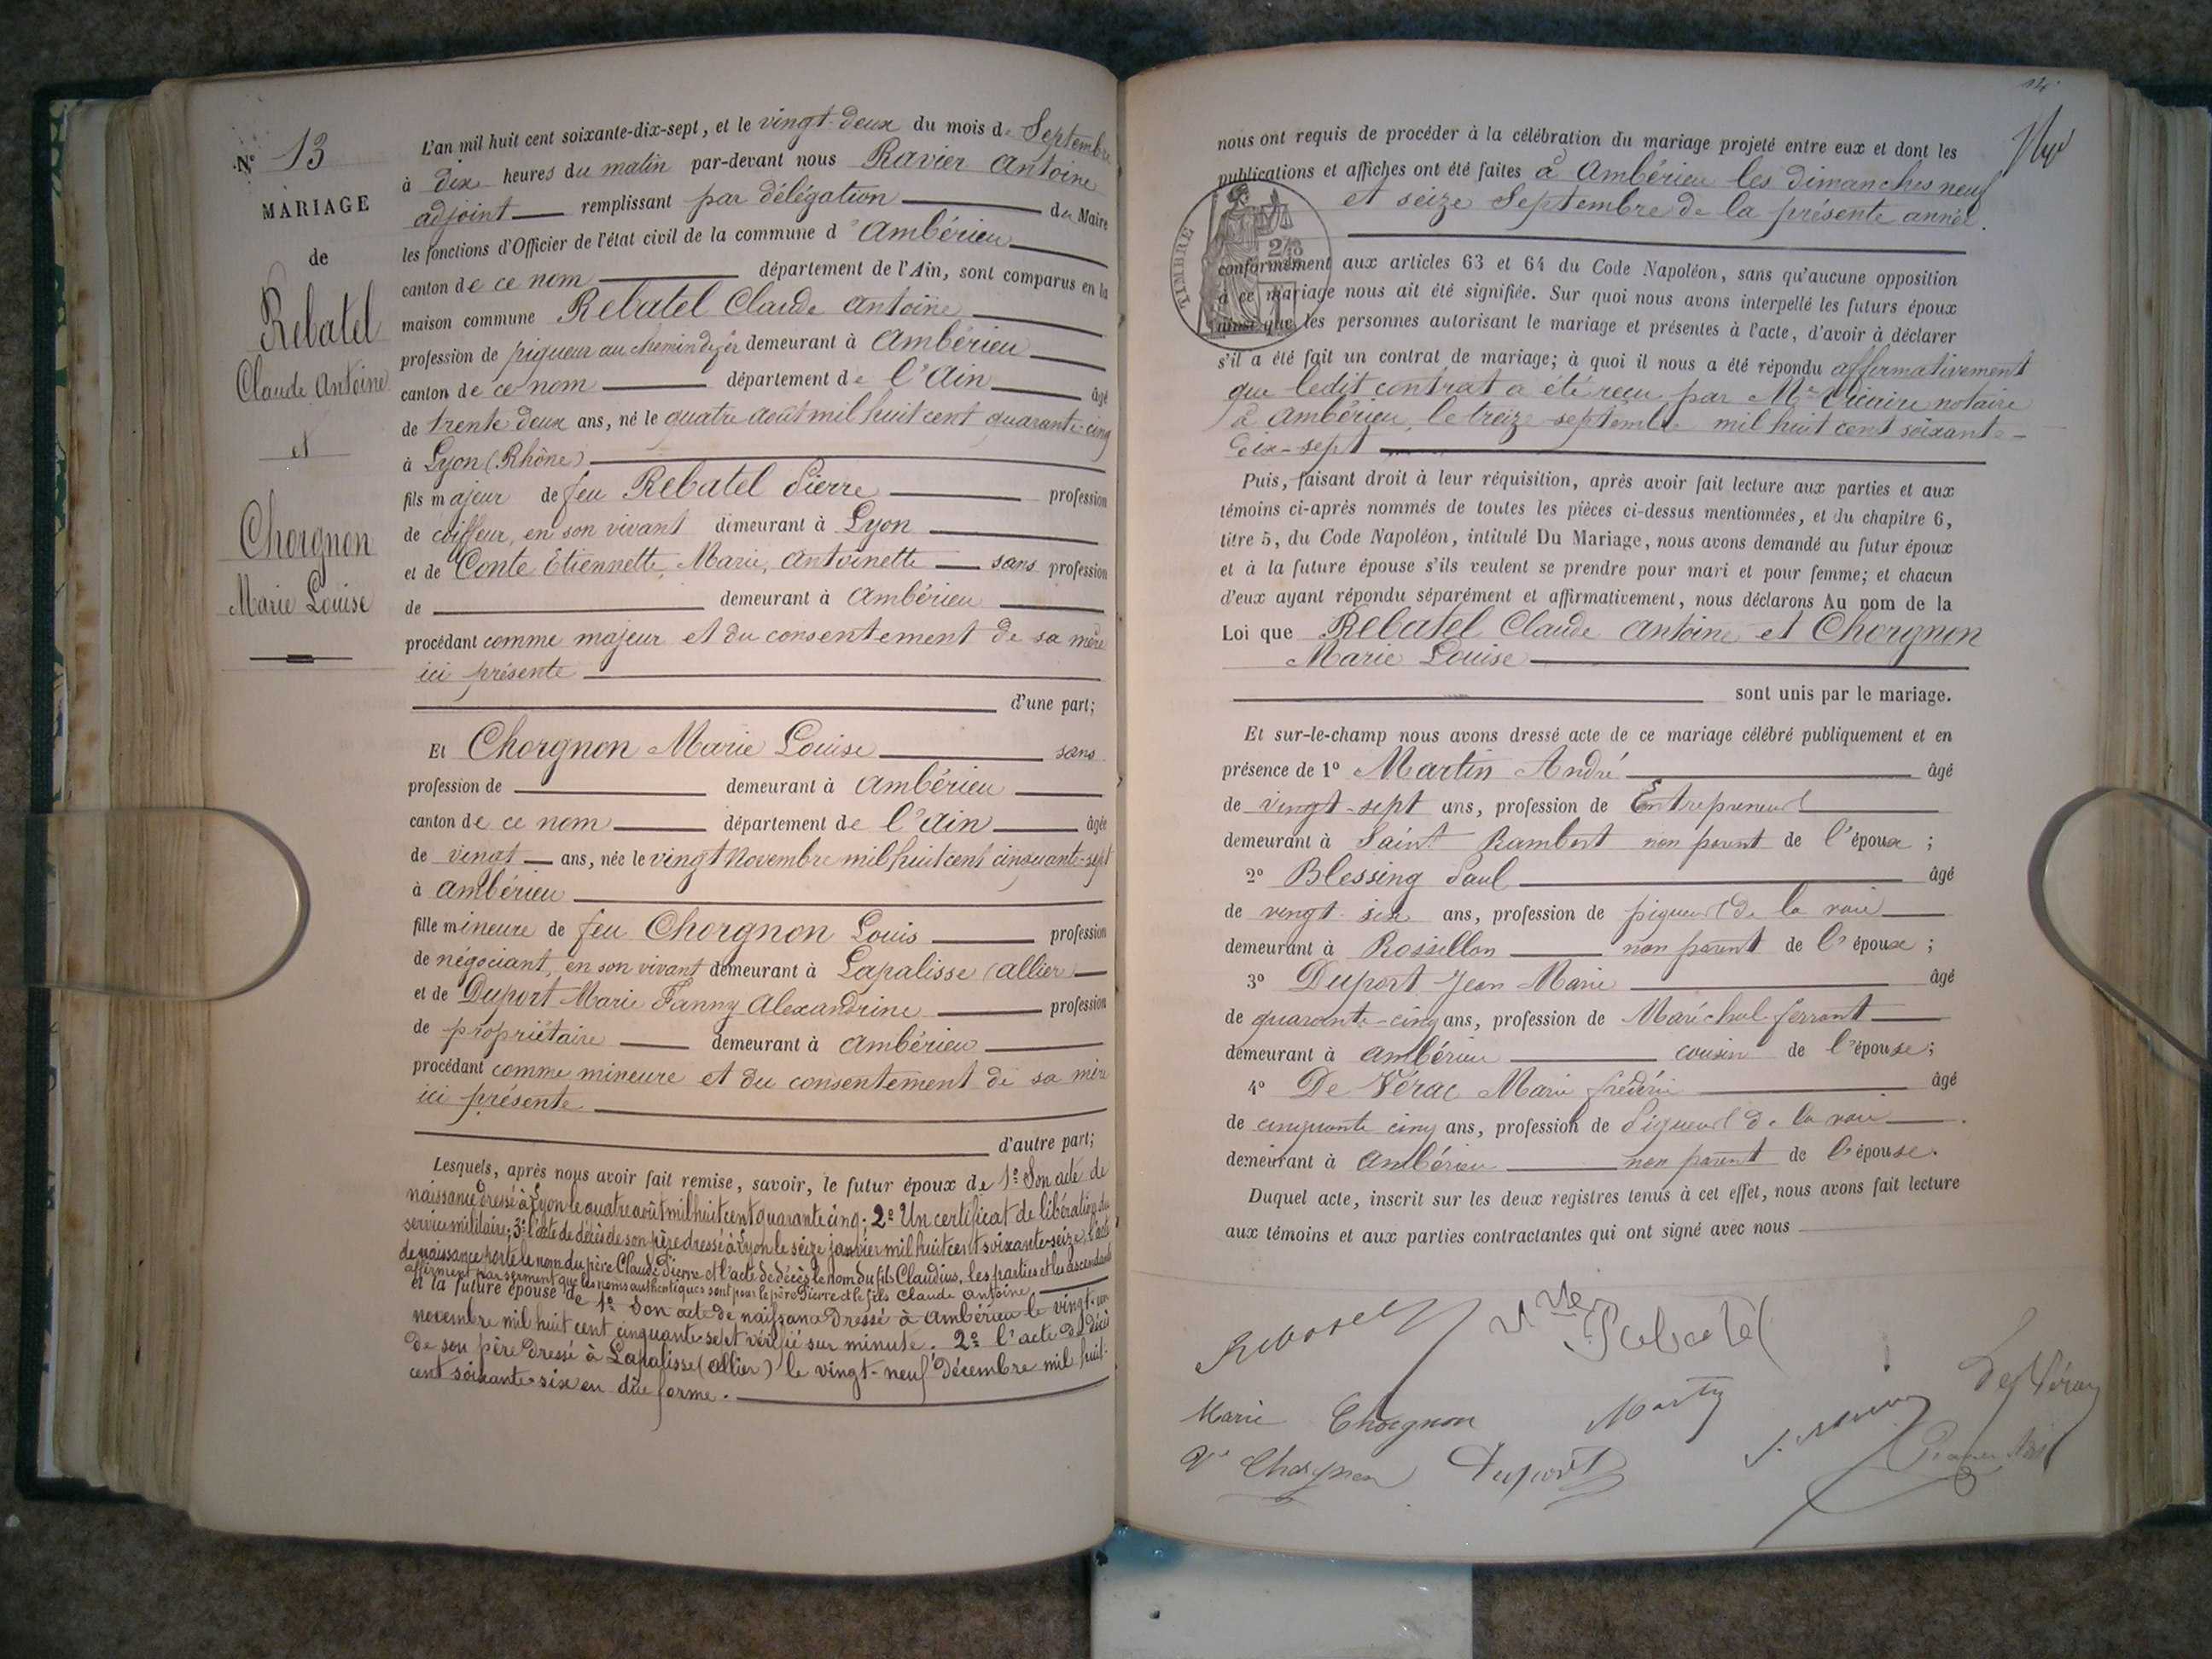 N° 13
MARIAGE
de
Rebatel
Claude Antoine
et
Chorgnon
Marie Louise
L'an mil huit cent soixante-dix-sept, et le vingt-deux du mois de Septembre
à dix heures du matin par-devant nous Ravier Antoine
adjoint remplissant par délégation du Maire
les fonctions d'Officier de l'état civil de la commune d'Ambérieu
canton de ce nom département de l'Ain, sont comparus en la
maison commune Rebatel Claude Antoine
profession de piqueur au chemin de fer demeurant à Ambérieu
canton de ce nom département de l'Ain âgé
de trente deux ans, né le quatre août mil huit cent quarante-cinq
à Lyon (Rhône)
fils majeur de feu Rebatel Pierre profession
de coiffeur, en son vivant demeurant à Lyon
et de Conte Etiennette, Marie, Antoinette sans profession
de demeurant à Ambérieu
procédant comme majeur et du consentement de sa mère
ici présente
d'une part;
Et Chorgnon Marie Louise sans
profession de demeurant à Ambérieu
canton de ce nom département de l'Ain âgée
de vingt ans, née le vingt Novembre mil huit cent cinquante-sept
à Ambérieu
fille mineure de feu Chorgnon Louis profession
de négociant, en son vivant demeurant à Lapalisse (Allier)
et de Duport Marie Fanny Alexandrine profession
de propriétaire demeurant à Ambérieu
procédant comme mineure et du consentement de sa mère
ici présente
d'autre part;
Lesquels, après nous avoir fait remise, savoir, le futur époux de 1° Son acte de
naissance dressé à Lyon le quatre août mil huit cent quarante cinq; 2° Un certificat de libération du
service militaire; 3° l'acte de décès de son père dressé à Lyon le seize janvier mil huit cent soixante-seize, l'acte
de naissance porte le nom du père Claude Pierre et l'acte de décès le nom du fils Claudius, les parties et les ascendants
affirment par serment que les noms authentiques sont pour le père Pierre et le fils Claude Antoine
et la future épouse de 1° Son acte de naissance dressé à Ambérieu le vingt-un
novembre mil huit cent cinquante-sept vérifié sur minute. 2° l'acte de décès
de son père dressé à Lapalisse (Allier) le vingt-neuf décembre mil huit-
cent soixante-six en dûe forme.
nous ont requis de procéder à la célébration du mariage projeté entre eux et dont les
publications et affiches ont été faites à Ambérieu les dimanches neuf
et seize Septembre de la présente année.
TIMBRE
conformément aux articles 63 et 64 du Code Napoléon, sans qu'aucune opposition
à ce mariage nous ait été signifiée. Sur quoi nous avons interpellé les futurs époux
ainsi que les personnes autorisant le mariage et présentes à l'acte, d'avoir à déclarer
s'il a été fait un contrat de mariage; à quoi il nous a été répondu affirmativement
que ledit contrat a été reçu par Me notaire
à Ambérieu, le treize septembre mil huit cent soixante-
dix-sept
Puis, faisant droit à leur réquisition, après avoir fait lecture aux parties et aux
témoins ci-après nommés de toutes les pièces ci-dessus mentionnées, et du chapitre 6,
titre 5, du Code Napoléon, intitulé Du Mariage, nous avons demandé au futur époux
et à la future épouse s'ils veulent se prendre pour mari et pour femme; et chacun
d'eux ayant répondu séparément et affirmativement, nous déclarons Au nom de la
Loi que Rebatel Claude Antoine et Chorgnon
Marie Louise
sont unis par le mariage.
Et sur-le-champ nous avons dressé acte de ce mariage célébré publiquement et en
présence de 1° Martin André âgé
de vingt-sept ans, profession de Entrepreneur
demeurant à Saint Rambert non parent de l'époux;
2° Blessing Paul âgé
de vingt six ans, profession de piqueur de la voie
demeurant à Rossillon non parent de l'époux;
3° Duport Jean Marie âgé
de quarante-cinq ans, profession de Maréchal-ferrant
demeurant à Ambérieu cousin de l'épouse;
4° De Vérac Marie Frédéric âgé
de cinquante cinq ans, profession de Piqueur de la voie
demeurant à Ambérieu non parent de l'épouse.
Duquel acte, inscrit sur les deux registres tenus à cet effet, nous avons fait lecture
aux témoins et aux parties contractantes qui ont signé avec nous
Rebatel Vve Rebatel
Marie Chorgnon
Ve Chorgnon Duport